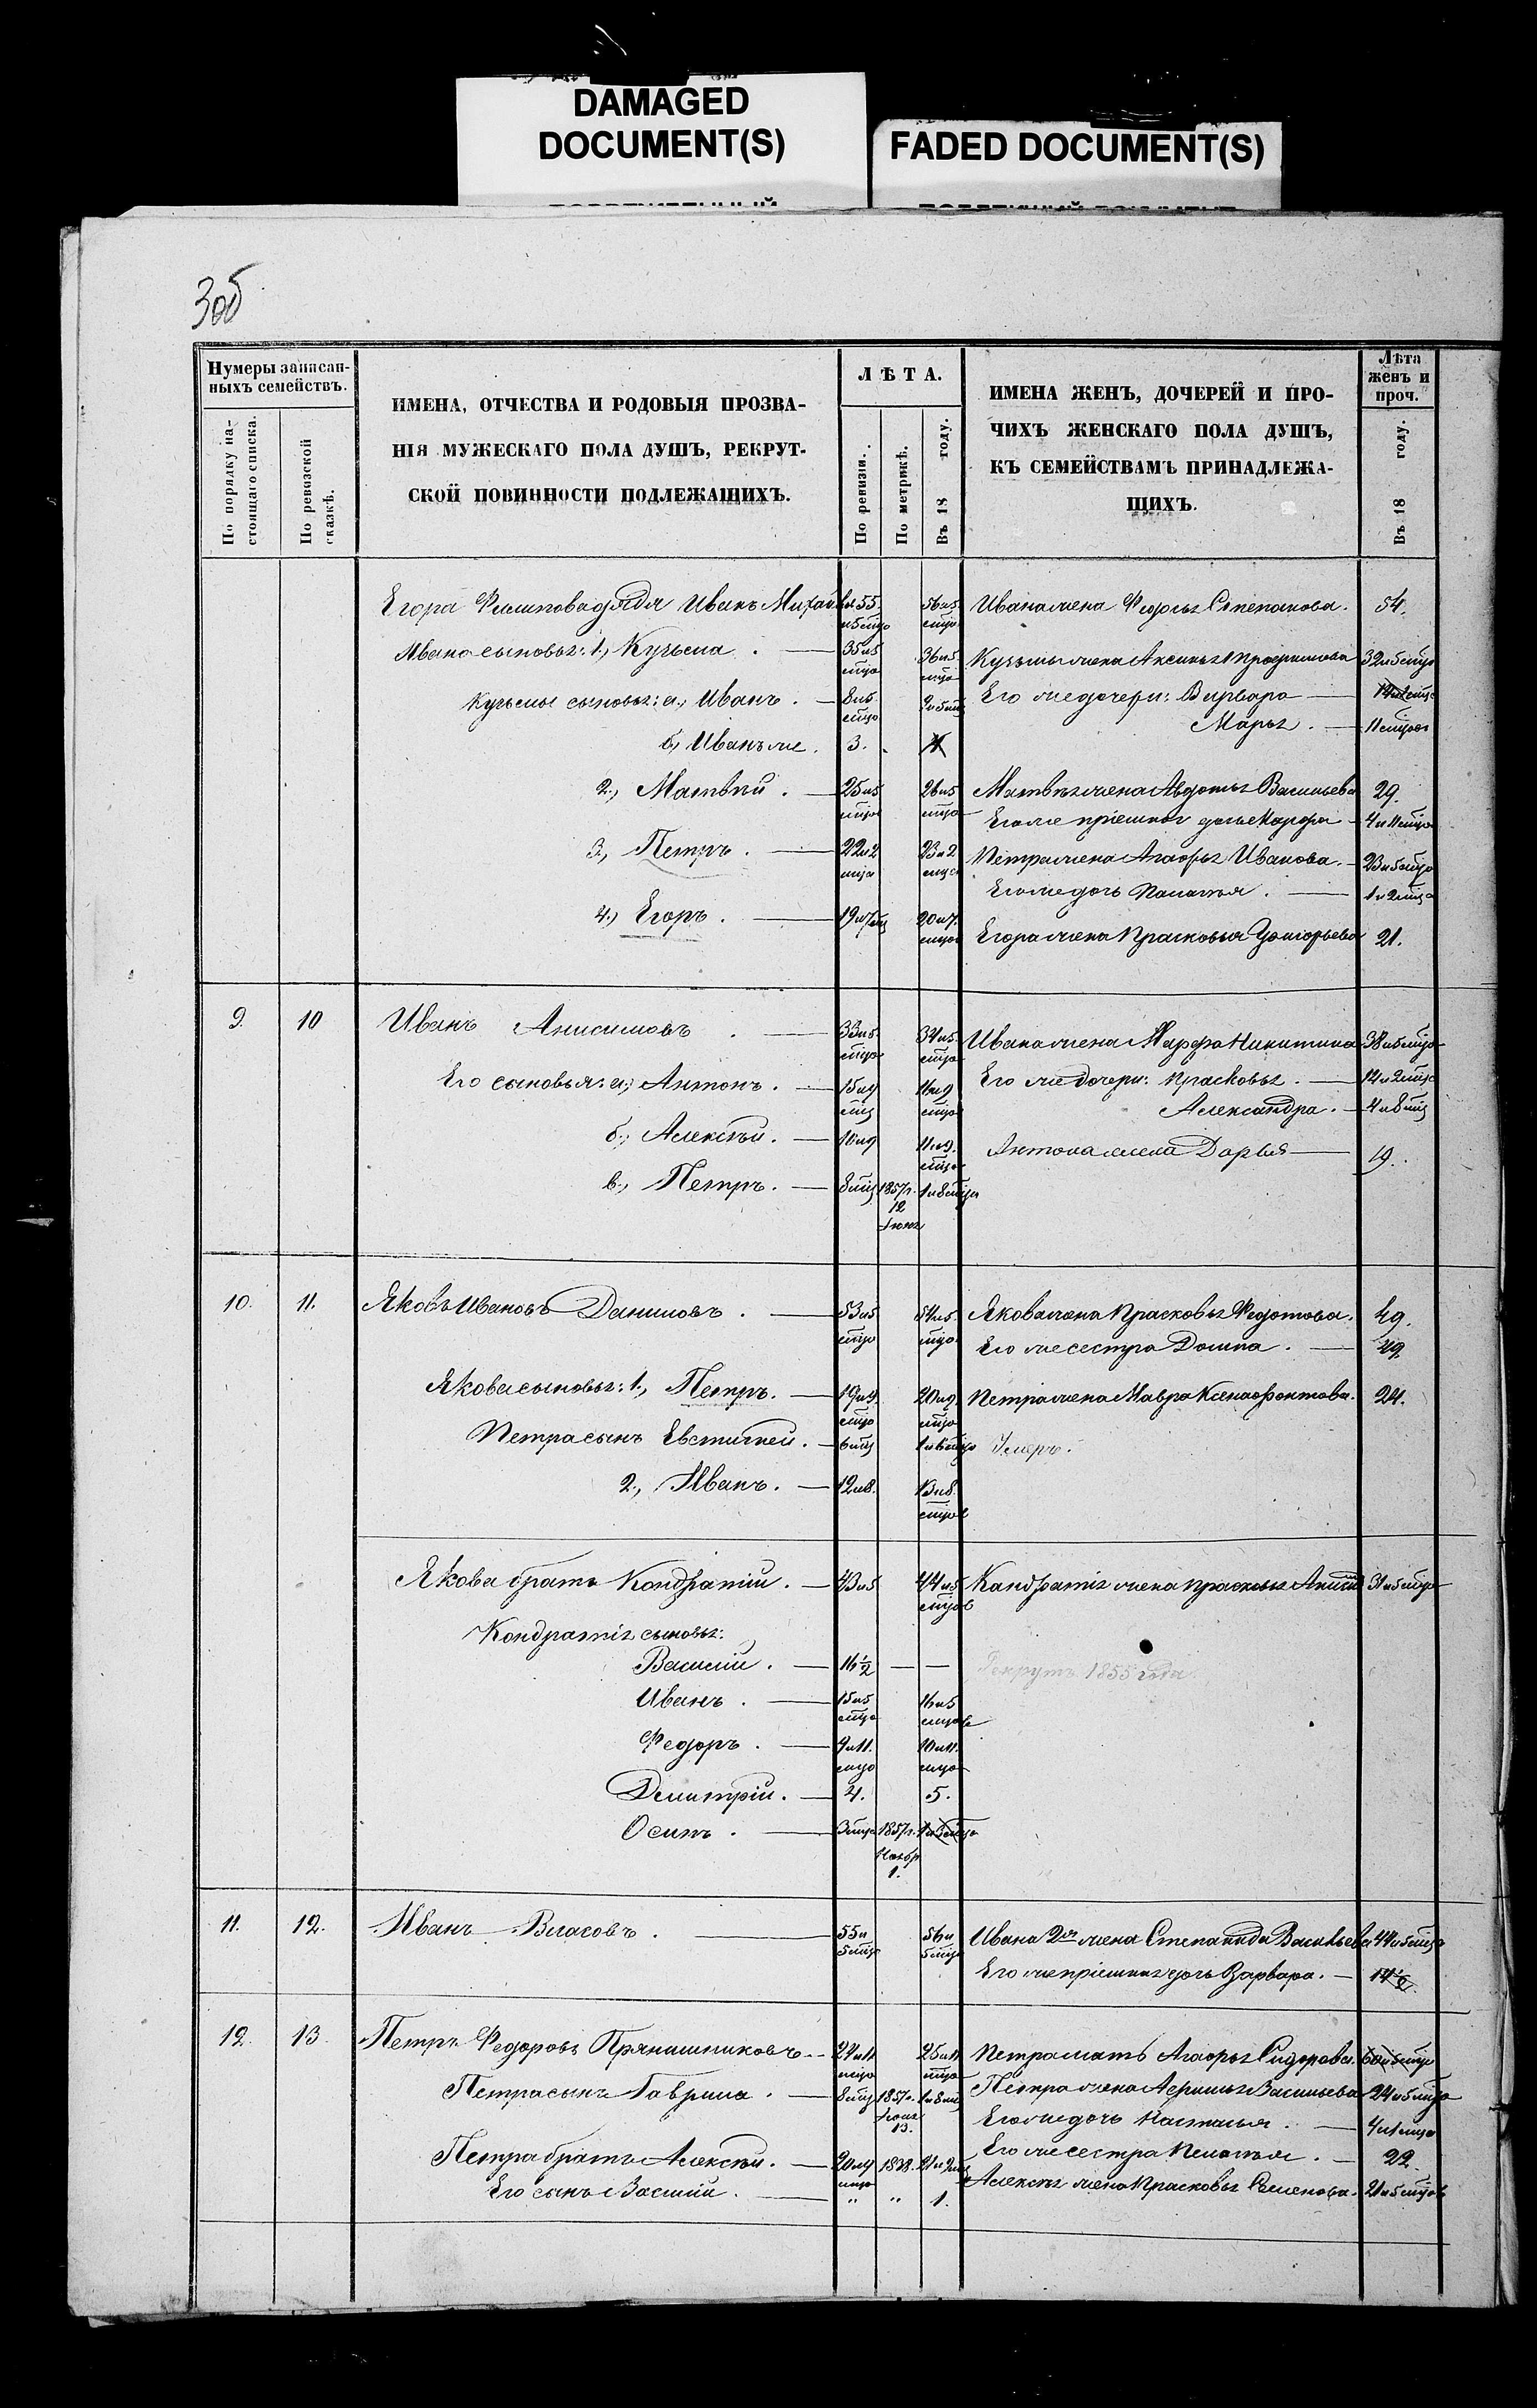 DAMAGED
DOCUMENT(S)
FADED DOCUMENT(S)
Нумеры записан-
ныхъ семействъ.
По порядку на-
стоящаго списка.
По ревизской
сказкѣ.
ИМЕНА, ОТЧЕСТВА И РОДОВЫЯ ПРОЗВА-
НІЯ МУЖЕСКАГО ПОЛА ДУШЪ, РЕКРУТ-
СКОЙ ПОВИННОСТИ ПОДЛЕЖАЩИХЪ.
ЛѢТА.
По ревизіи.
По метрикѣ.
Въ 18 году.
ИМЕНА ЖЕНЪ, ДОЧЕРЕЙ И ПРО-
ЧИХЪ ЖЕНСКАГО ПОЛА ДУШЪ,
КЪ СЕМЕЙСТВАМЪ ПРИНАДЛЕЖА-
ЩИХЪ.
Лѣта
женъ и
проч.
Въ 18 году.
Егора Филипова дядя Иванъ 55 56 и 5 Ивана жена 54.
Ивана сыновья: 1, Кузьма 35 и 5 36 и 5 Кузьмы жена 32 и 5
Кузьмы сыновья: а, Иванъ. 8 и 5 Его же дочери: Варвара
Марья. 11
б, Иванъ же. 3.
2, Матвѣй. 25 и 5 26 и 5 Матвѣя жена Авдотья Васильева 29.
Его же пріемная дочь Марфа 4 и 11
3, Петръ. 22 и 2 23 и 2 Петра жена Агафья Иванова. 23 и 5
Его же дочь Палагья. 1 и 2
4, Егоръ. 19 и 7 20 и 7 Егора жена Прасковья Григорьева 21.
9. 10 Иванъ Анисимовъ 33 и 5 34 и 5 Ивана жена Марфа Никитина 38 и 5
Его сыновья: а, Антонъ. 15 и 9 16 и 9 Его же дочери: Прасковья. 12 и 2
Александра. 4 и 8
б, Алексѣй. 10 и 9 11 и 9 Антона жена Дарья 19.
в, Петръ. 8 1857г. 12 1 и 8
10. 11. Яковъ Ивановъ Даниловъ. 53 и 5 54 и 5 Якова жена Прасковья Федотова. 49.
Его же сестра Домна. 49.
Якова сыновья: 1, Петръ. 19 и 9 20 и 9 Петра жена Мавра Ксенофонтова. 24.
Петра сынъ Евстигней. 6 1 и 6 Умеръ.
2, Иванъ. 12 и 8. 13 и 8.
Якова братъ Кондратій. 43 и 5 44 и 5 Кондратія жена Прасковья 31 и 5
Кондратія сыновья:
Василій. 16½ — — Рекрутъ 1855 года
Иванъ. 15 и 5 16 и 5
Федоръ. 9 и 11. 10 и 11.
Дмитрій. 4. 5.
Осипъ. 3 1857г. Ноябр 1.
11. 12. Иванъ Власовъ. 55 и 5 56 и 5 Ивана 2я жена Степанида Васильева 44 и 5
Его же пріемная дочь Варвара.
12. 13. Петръ Федоровъ Прянишниковъ 24 и 11 25 и 11 Петра мать Агафья Сидорова.
Петра сынъ Гаврила. 8 1857г. 13. 1 и 8 Петра жена Афимья Васильева 24 и 5
Его же дочь Настасья. 4 и 1
Петра братъ Алексѣй. 20 и 9 1838. Его же сестра Пелагья. 22.
Его сынъ Василій. " " 1. Алексѣя жена Прасковья Семенова. 21 и 5